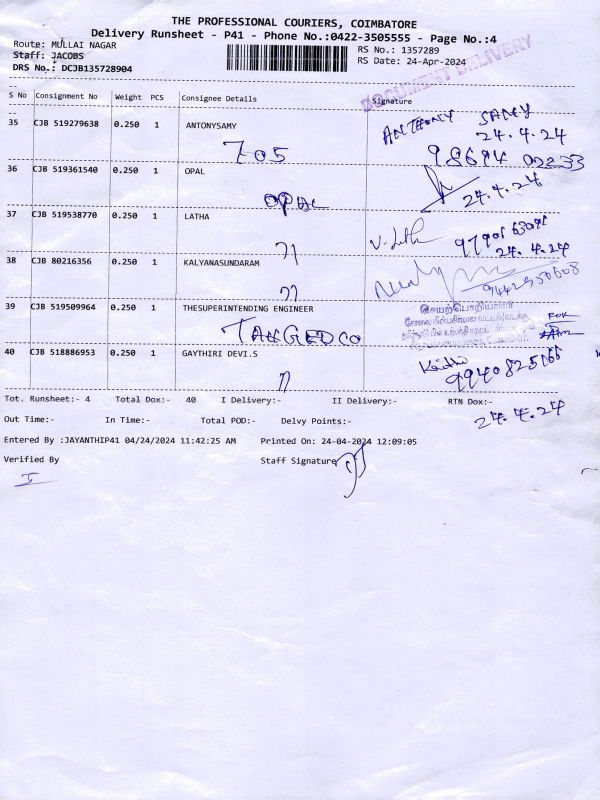 THE PROFESSIONAL COURIERS, COIMBATORE
Delivery Runsheet - P41 - Phone No.:0422-3505555 - Page No.:4
Route: MULLAI NAGAR
RS No.: 1357289
Staff: JACOBS
RS Date: 24-Apr-2024
DRS No.: DCJB135728904
DOCUMENT DELIVERY
S No Consignment No Weight PCS Consignee Details Signature
ANTHONY SAMY
35 CJB 519279638 0.250 1 ANTONYSAMY
24.4.24
705
36 CJB 519361540 0.250 1 OPAL
24.4.24
OPAL
37 CJB 519538770 0.250 1 LATHA
V. Latha
24.4.24
38 CJB 80216356 0.250 1 KALYANASUNDARAM
39 CJB 519509964 0.250 1 THESUPERINTENDING ENGINEER
செயற்பொறியாளர்
FOR
TANGEDCO
40 CJB 518886953 0.250 1 GAYTHIRI DEVI.S
Tot. Runsheet:- 4 Total Dox:- 40 I Delivery:- II Delivery:- RTN Dox:-
24.4.24
Out Time:- In Time:- Total POD:- Delvy Points:-
Entered By :JAYANTHIP41 04/24/2024 11:42:25 AM Printed On: 24-04-2024 12:09:05
Verified By Staff Signature